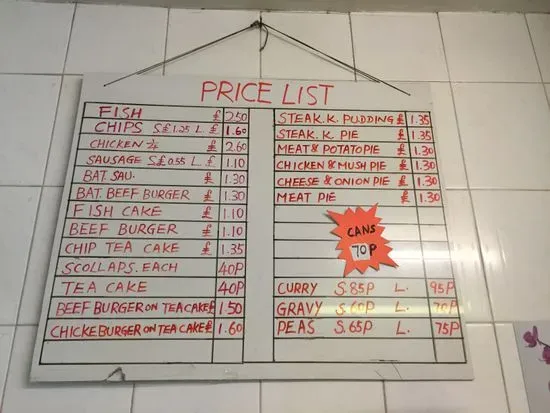 PRICE LIST
FISH £ 2.50
CHIPS S£1.25 L. £ 1.60
CHICKEN ¼ £ 2.60
SAUSAGE S£0.55 L £ 1.10
BAT. SAU. £ 1.30
BAT. BEEF BURGER £ 1.30
FISH CAKE £ 1.10
BEEF BURGER £ 1.10
CHIP TEA CAKE £ 1.35
SCOLLAPS. EACH 40P
TEA CAKE 40P
BEEF BURGER ON TEA CAKE £ 1.50
CHICKEBURGER ON TEA CAKE £ 1.60
STEAK. K. PUDDING £ 1.35
STEAK. K. PIE £ 1.35
MEAT & POTATO PIE £ 1.30
CHICKEN & MUSH PIE £ 1.30
CHEESE & ONION PIE £ 1.30
MEAT PIE £ 1.30
CANS
70P
CURRY S.85P L. 95P
GRAVY S.60P L. 70P
PEAS S.65P L. 75P